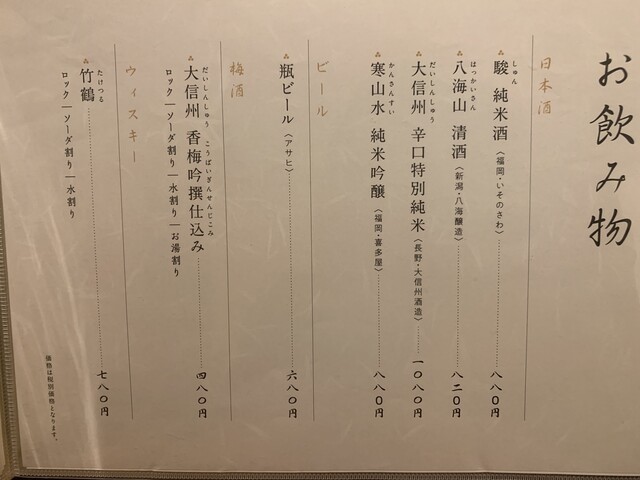 お飲み物
日本酒
駿 純米酒〈福岡・いそのさわ〉 八八〇円
しゅん
八海山 清酒〈新潟・八海醸造〉 八二〇円
はっかいさん
大信州 辛口特別純米〈長野・大信州酒造〉 一〇八〇円
だいしんしゅう
寒山水 純米吟醸〈福岡・喜多屋〉 八八〇円
かんさんすい
ビール
瓶ビール〈アサヒ〉 六八〇円
梅酒
大信州 香梅吟撰仕込み 四八〇円
だいしんしゅう こうばいぎんせんじこみ
ロック―ソーダ割り―水割り―お湯割り
ウィスキー
竹鶴 七八〇円
たけつる
ロック―ソーダ割り―水割り
価格は税別価格となります。